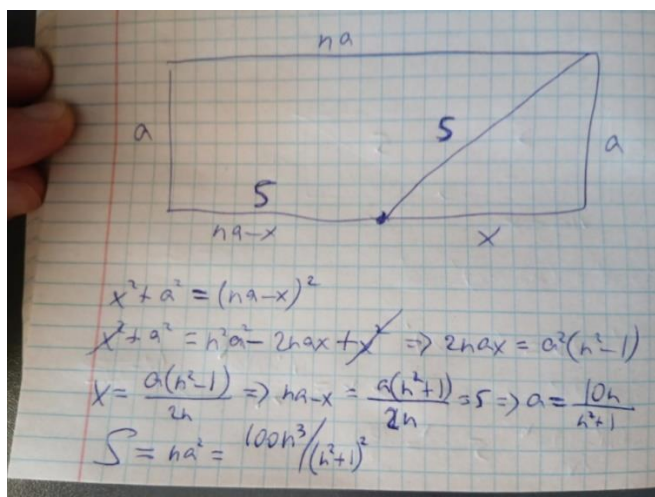 na
a
5
a
5
na-x
x
x²+a² = (na-x)²
x²+a² = n²a² - 2nax + x² => 2nax = a²(n²-1)
x = a(n²-1)/2n => na-x = a(n²+1)/2n = 5 => a = 10n/n²+1
S = na² = 100n³/(n²+1)²